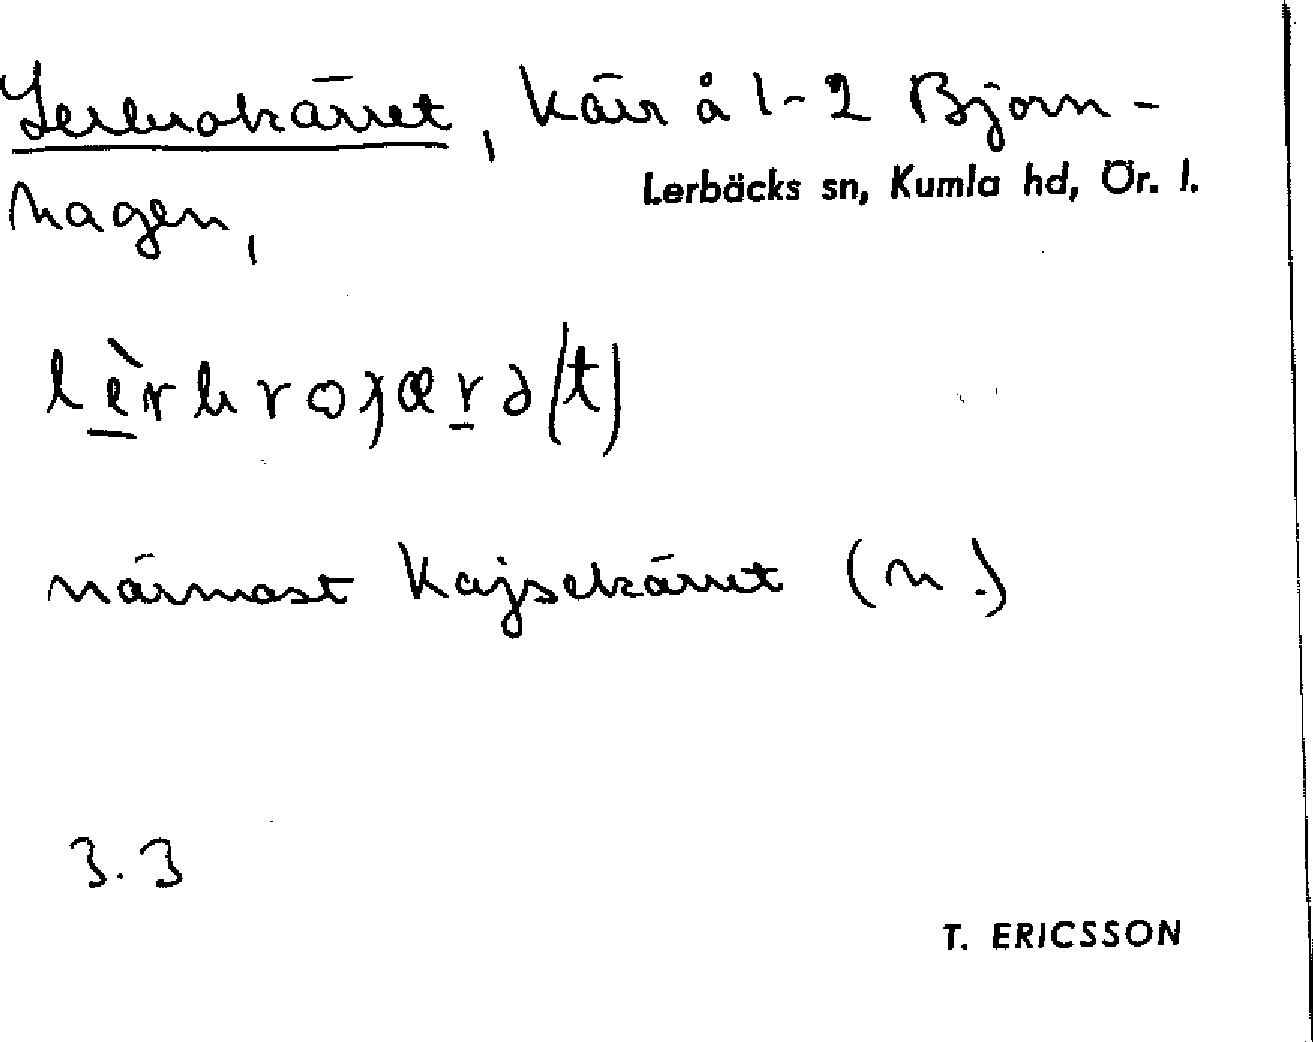 Lerbrokärret, kärr å 1-2 Björn-
Lerbäcks sn, Kumla hd, Ör. l.
hagen,
närmast Kajsekärret (n.)
3.3
T. ERICSSON